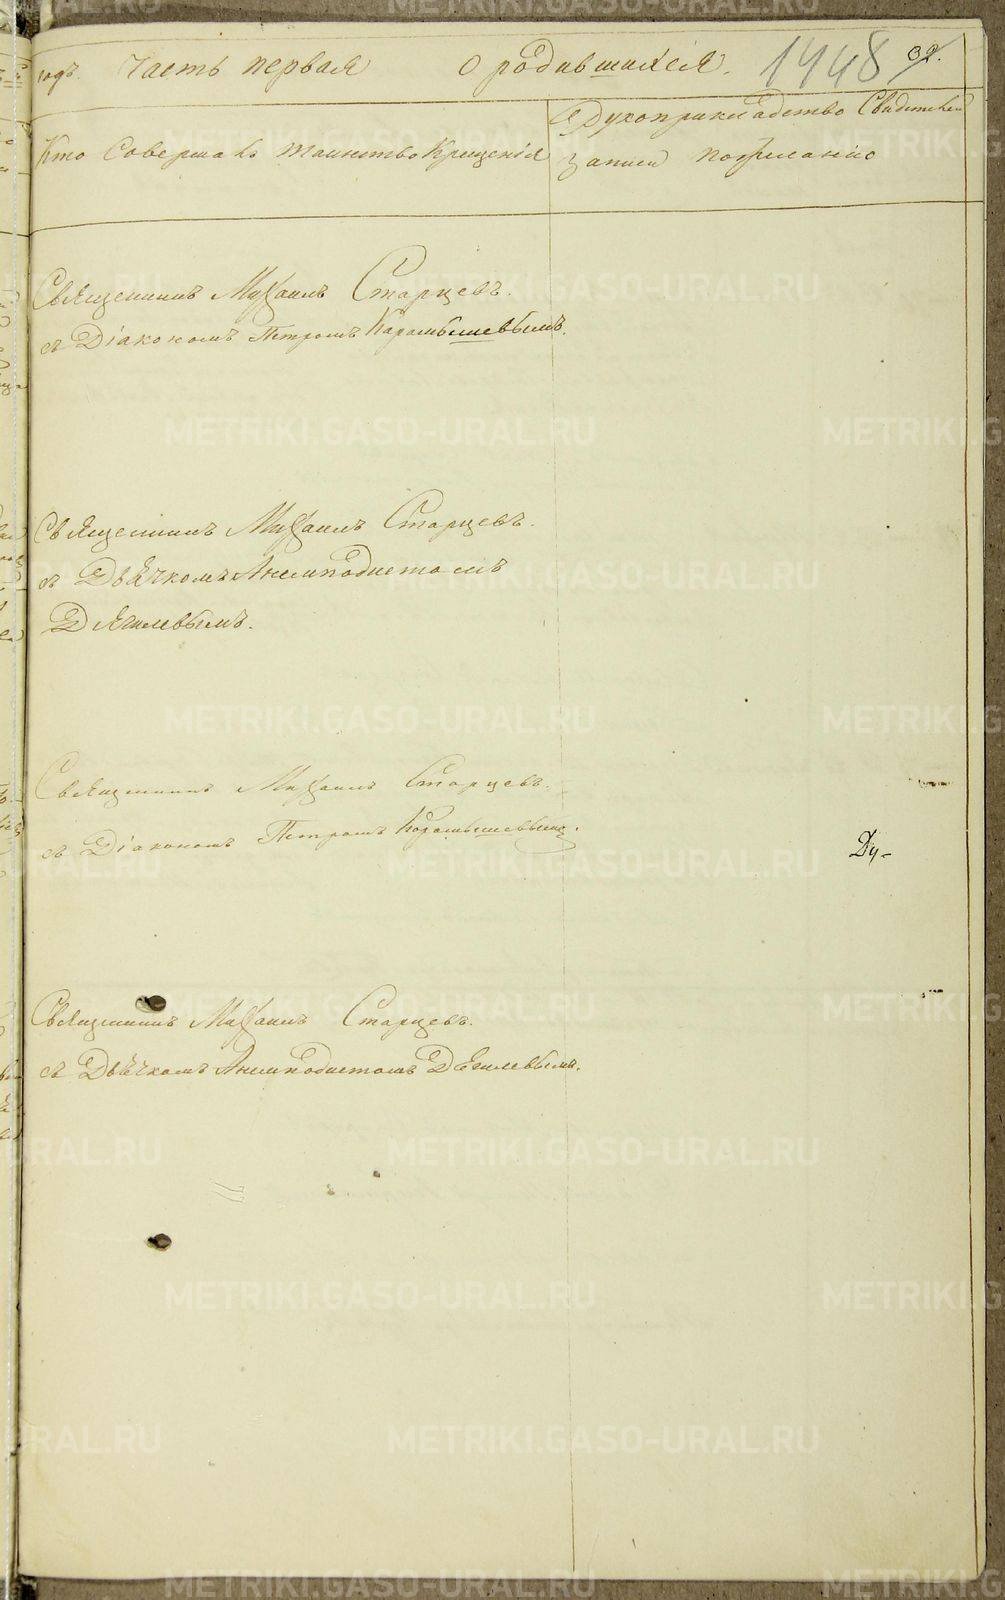 годъ. Часть первая О родившихся. 1448 32.
Кто Совершалъ таинство Крещенія
Рукоприкладство Свидѣтелей
записи по желанію
Священникъ Михаилъ Старцевъ.
съ Діакономъ Петромъ Карамышевымъ.
Священникъ Михаилъ Старцевъ.
съ Дьячкомъ Анемподистомъ
Дягилевымъ.
Священникъ Михаилъ Старцевъ.
съ Діакономъ Петромъ Карамышевымъ.
Ду-
Священникъ Михаилъ Старцевъ.
съ Дьячкомъ Анемподистомъ Дягилевымъ.
METRIKI.GASO-URAL.RU